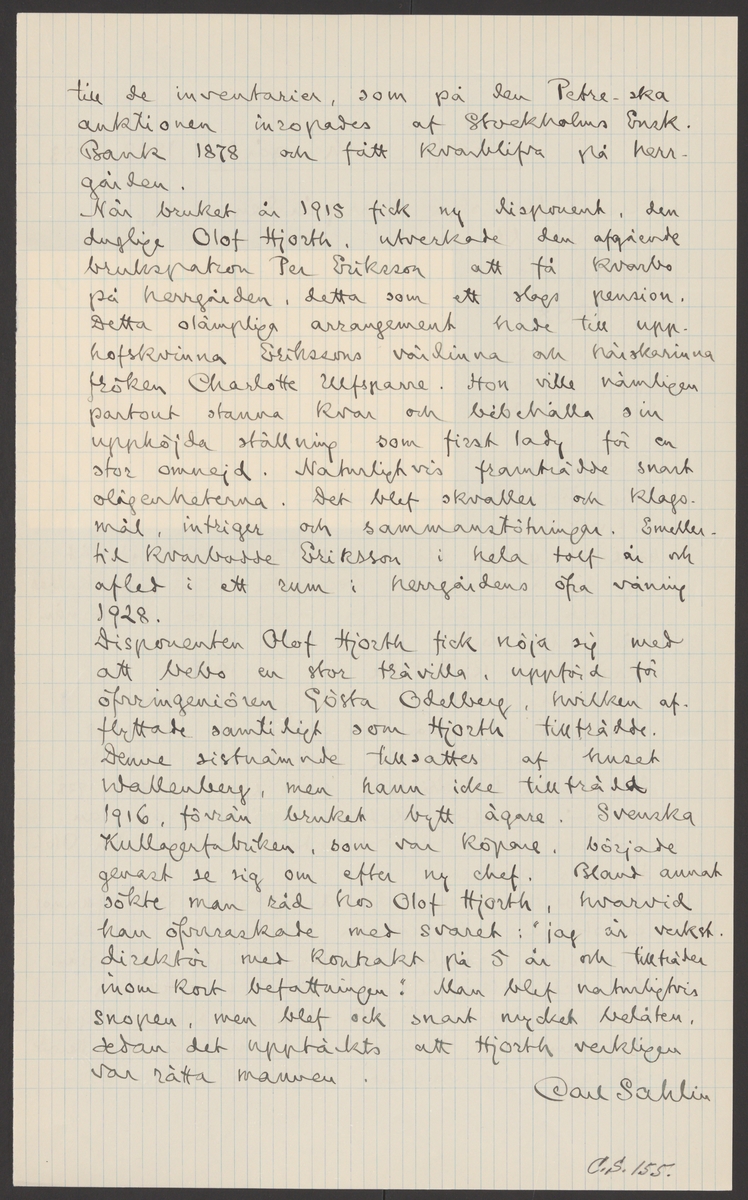 till de inventarier, som på den Petre-ska
auktionen inropades af Stockholms Ensk.
Bank 1878 och fått kvarblifva på herr-
gården.
När bruket år 1915 fick ny disponent, den
duglige Olof Hjorth, utverkade den afgående
brukspatron Per Eriksson att få kvarbo
på herrgården, detta som ett slags pension.
Detta olämpliga arrangement hade till upp-
hofskvinna Erikssons värdinna och härskarinna
fröken Charlotte Ulfsparre. Hon ville nämligen
partout stanna kvar och bibehålla sin
upphöjda ställning som first lady för en
stor omnejd. Naturligtvis framträdde snart
olägenheterna. Det blef skvaller och klago-
mål, intriger och sammanstötningar. Emeller-
tid kvarbodde Eriksson i hela tolf år och
afled i ett rum i herrgårdens öfra våning
1928.
Disponenten Olof Hjorth fick nöja sig med
att bebo en stor trävilla, uppförd för
öfveringeniören Gösta Odelberg, hvilken af-
flyttade samtidigt som Hjorth tillträdde.
Denne sistnämnde tillsattes af huset
Wallenberg, men hann icke tillträda
1916, förrän bruket bytt ägare. Svenska
Kullagerfabriken, som var köpare, började
genast se sig om efter ny chef. Bland annat
sökte man råd hos Olof Hjorth, hvarvid
han öfverraskade med svaret: "jag är verkst.
direktör med kontrakt på 5 år och tillträder
inom kort befattningen." Man blef naturligtvis
snopen, men blef ock snart mycket belåten,
sedan det upptäckts att Hjorth verkligen
var rätta mannen.
Carl Sahlin
C.S. 155.